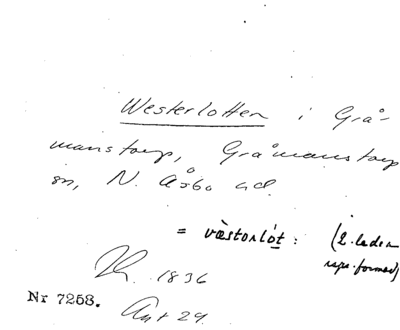 Westerlotten i Grå-
manstorp, Gråmanstorp
sn, N. Åsbo hd.
= væstorlót: (2. leden
repr. formed)
1836
Nr 7258. Ant 29.